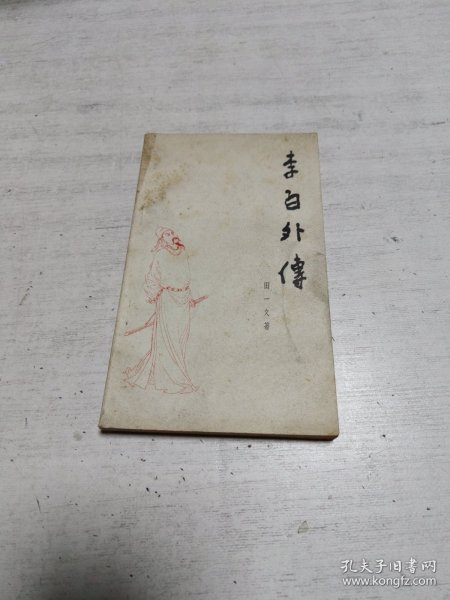 李白外傳
田一文著
孔夫子旧书网
www.kongfz.com